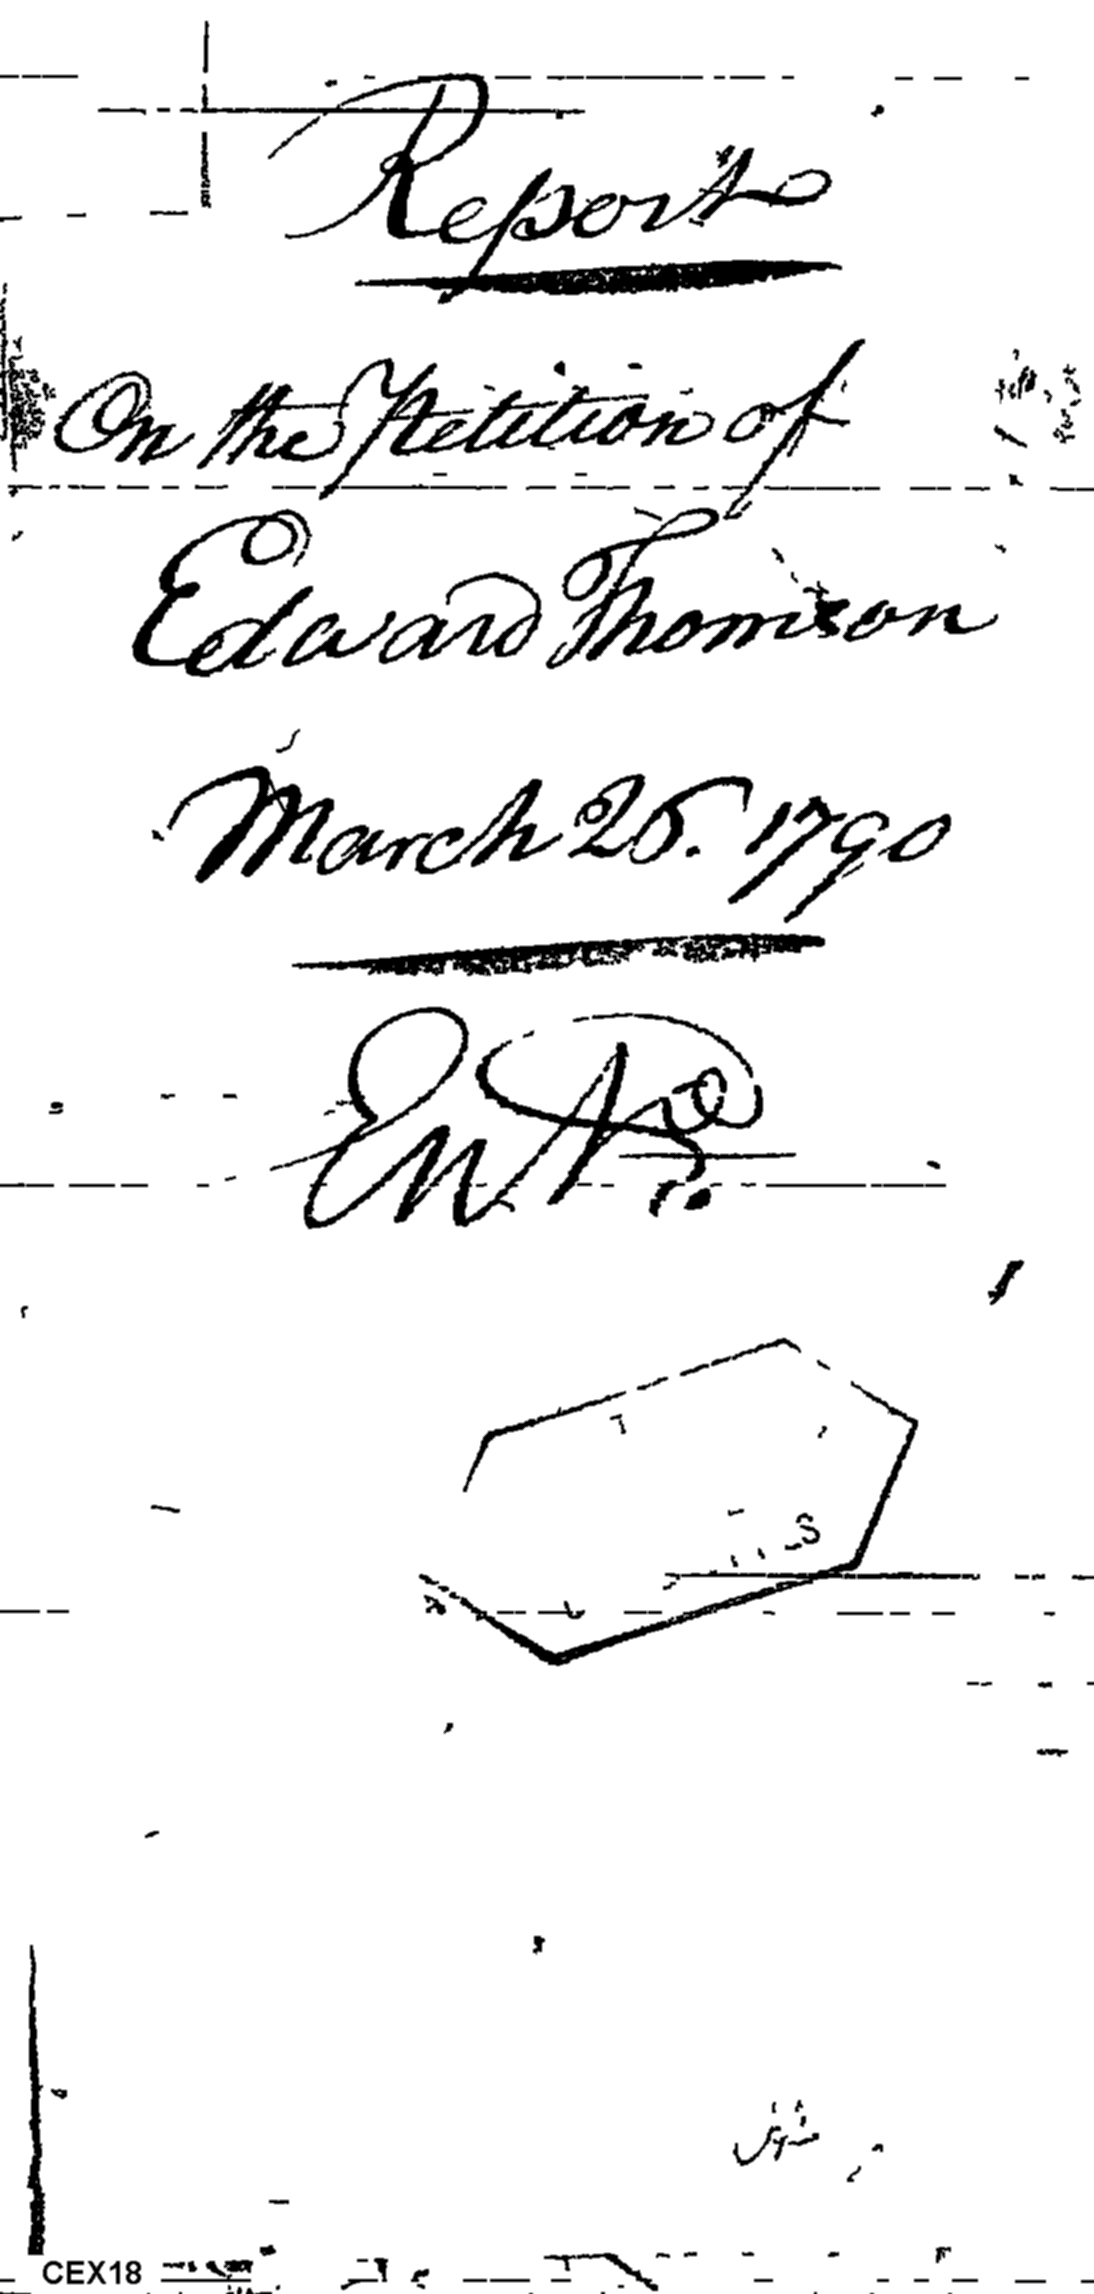 Report
On the Petition of
Edward Thomson
March 25. 1790
CEX18